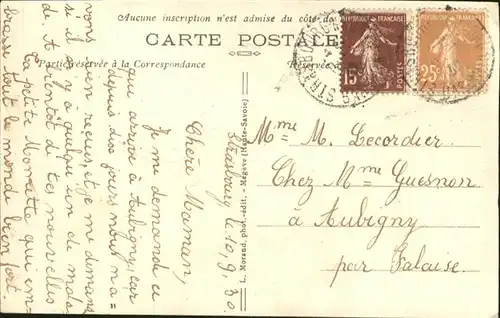 Aucune inscription n'est admise du côté de
CARTE POSTALE
Partie réservée à la Correspondance
Réservée à
REPUBLIQUE FRANÇAISE
15c
POSTES
REPUBLIQUE FRANÇAISE
25c
L. Morand, phot.-édit. - Megève (Haute-Savoie)
Strasbourg le 10.9.30
Chère Maman,
Je me demande ce
qui arrive à Aubigny, car
depuis dix jours nous n'a-
vons rien reçu, et je me demande
si il y a quelqu'un de malade
A bientôt de tes nouvelles
La petite Momette qui em-
brasse tout le monde bien fort
Mme M. Lecordier
Chez Mme Guesnon
à Aubigny
par Falaise.